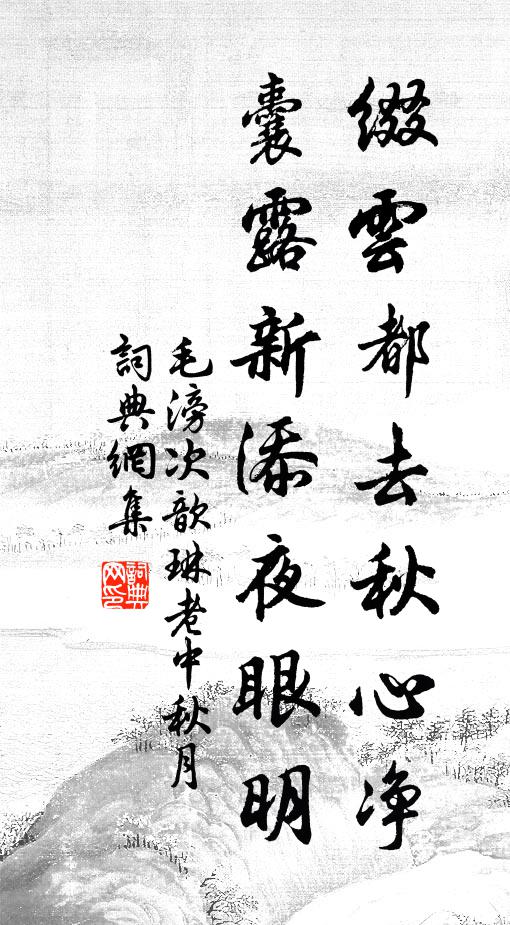 綴雲都去秋心净
囊露新添夜眼明
毛滂次韵琳老中秋月
詞典網集
詞典
网印